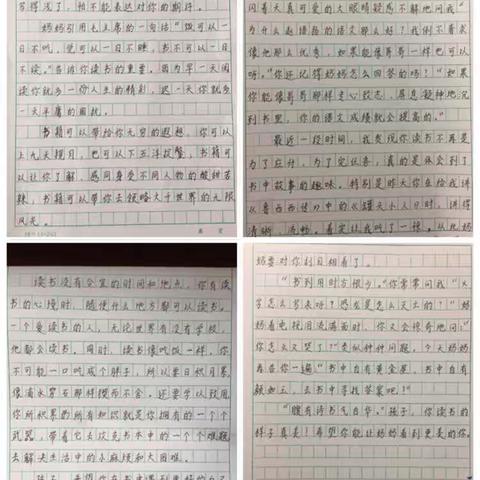 写得浅了，怕不能表达对你的期待。
妈妈引用毛主席的一句话“饭可以一
日不吃，觉可以一日不睡，书不可以一日不
读。”告诉你读书的重要。因为早一天阅
读你就多一份人生的精彩，迟一天你就多
一天平庸的困扰。
书籍可以带给你无穷的遐想，你可以
上九天揽月，也可以下五洋捉鳖，书籍可
以让你了解、感同身受不同人物的酸甜苦
辣，书籍可以带你去领略大千世界的无限
风光。
闪着天真可爱的大眼睛疑惑不解地问我“
为什么赵语的语文那么好？我倒不着求
像他那么优秀，如果能像哥哥一样也可以
呀。”你还记得妈妈怎么回答的吗？“如果
你能像哥哥那样专心致志、屏息凝神地沉
到书里，你的语文成绩就会提高的。”
最近一段时间，我发现你读书不再是
为了应付，为了完任务，真的是体会到了
书中故事的趣味。特别是昨天你在给我讲
《鲁西西传》中的《罐头小人》时，讲得
清晰、流畅，着实让我吃了一惊，从此妈
读书没有合适的时间和地点，你有读
书的心境时，随便什么地方都可以读书。
一个爱读书的人，无论世界有没有学校，
他都会读书。同时，读书像吃饭一样，你
不可能一口吃成个胖子，所以要日积月累，
像滴水穿石那样锲而不舍。还要学以致用，
你所积累的所有知识就是你拥有的一个个
武器，带着它去攻克书本中的一个个难题，
去解决生活中的小麻烦和大困难。
妈要对你刮目相看了。
“书到用时方恨少。”你常常问我“火
字怎么写表呀？恐龙是怎么灭亡的？”妈
妈看电视泪流满面时，你又会惊奇地问：“
你怎么又哭了？”类似种种问题，今天妈妈
再告你一遍“书中自有黄金屋，书中自有
颜如玉，去书中寻找答案吧！”
“腹有诗书气自华。”孩子，你读书的
样子真美！希望你能让妈妈看到更美的你。